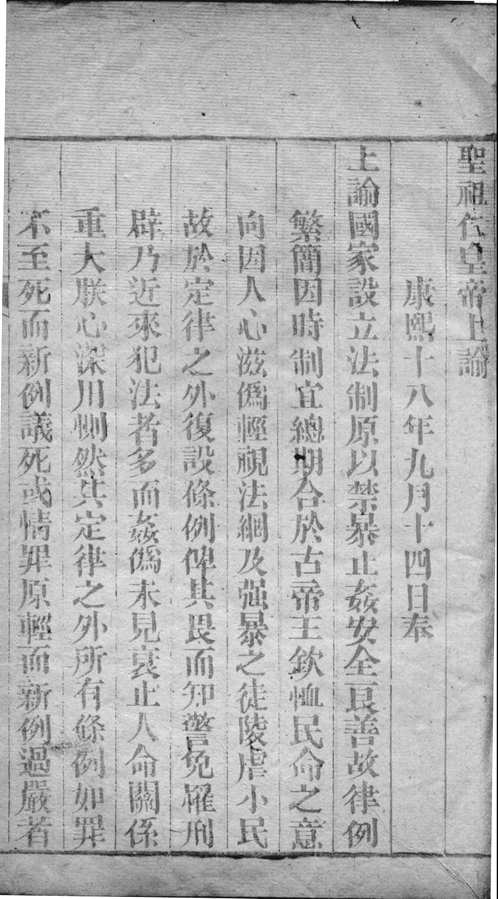 聖祖仁皇帝上諭
康熙十八年九月十四日奉
上諭國家設立法制原以禁暴止姦安全良善故律例
繁簡因時制宜總期合於古帝王欽恤民命之意
向因人心滋偽輕視法網及强暴之徒陵虐小民
故於定律之外復設條例俾其畏而知警免罹刑
辟乃近來犯法者多而姦偽未見衰止人命關係
重大朕心深用惻然其定律之外所有條例如罪
不至死而新例議死或情罪原輕而新例過嚴者